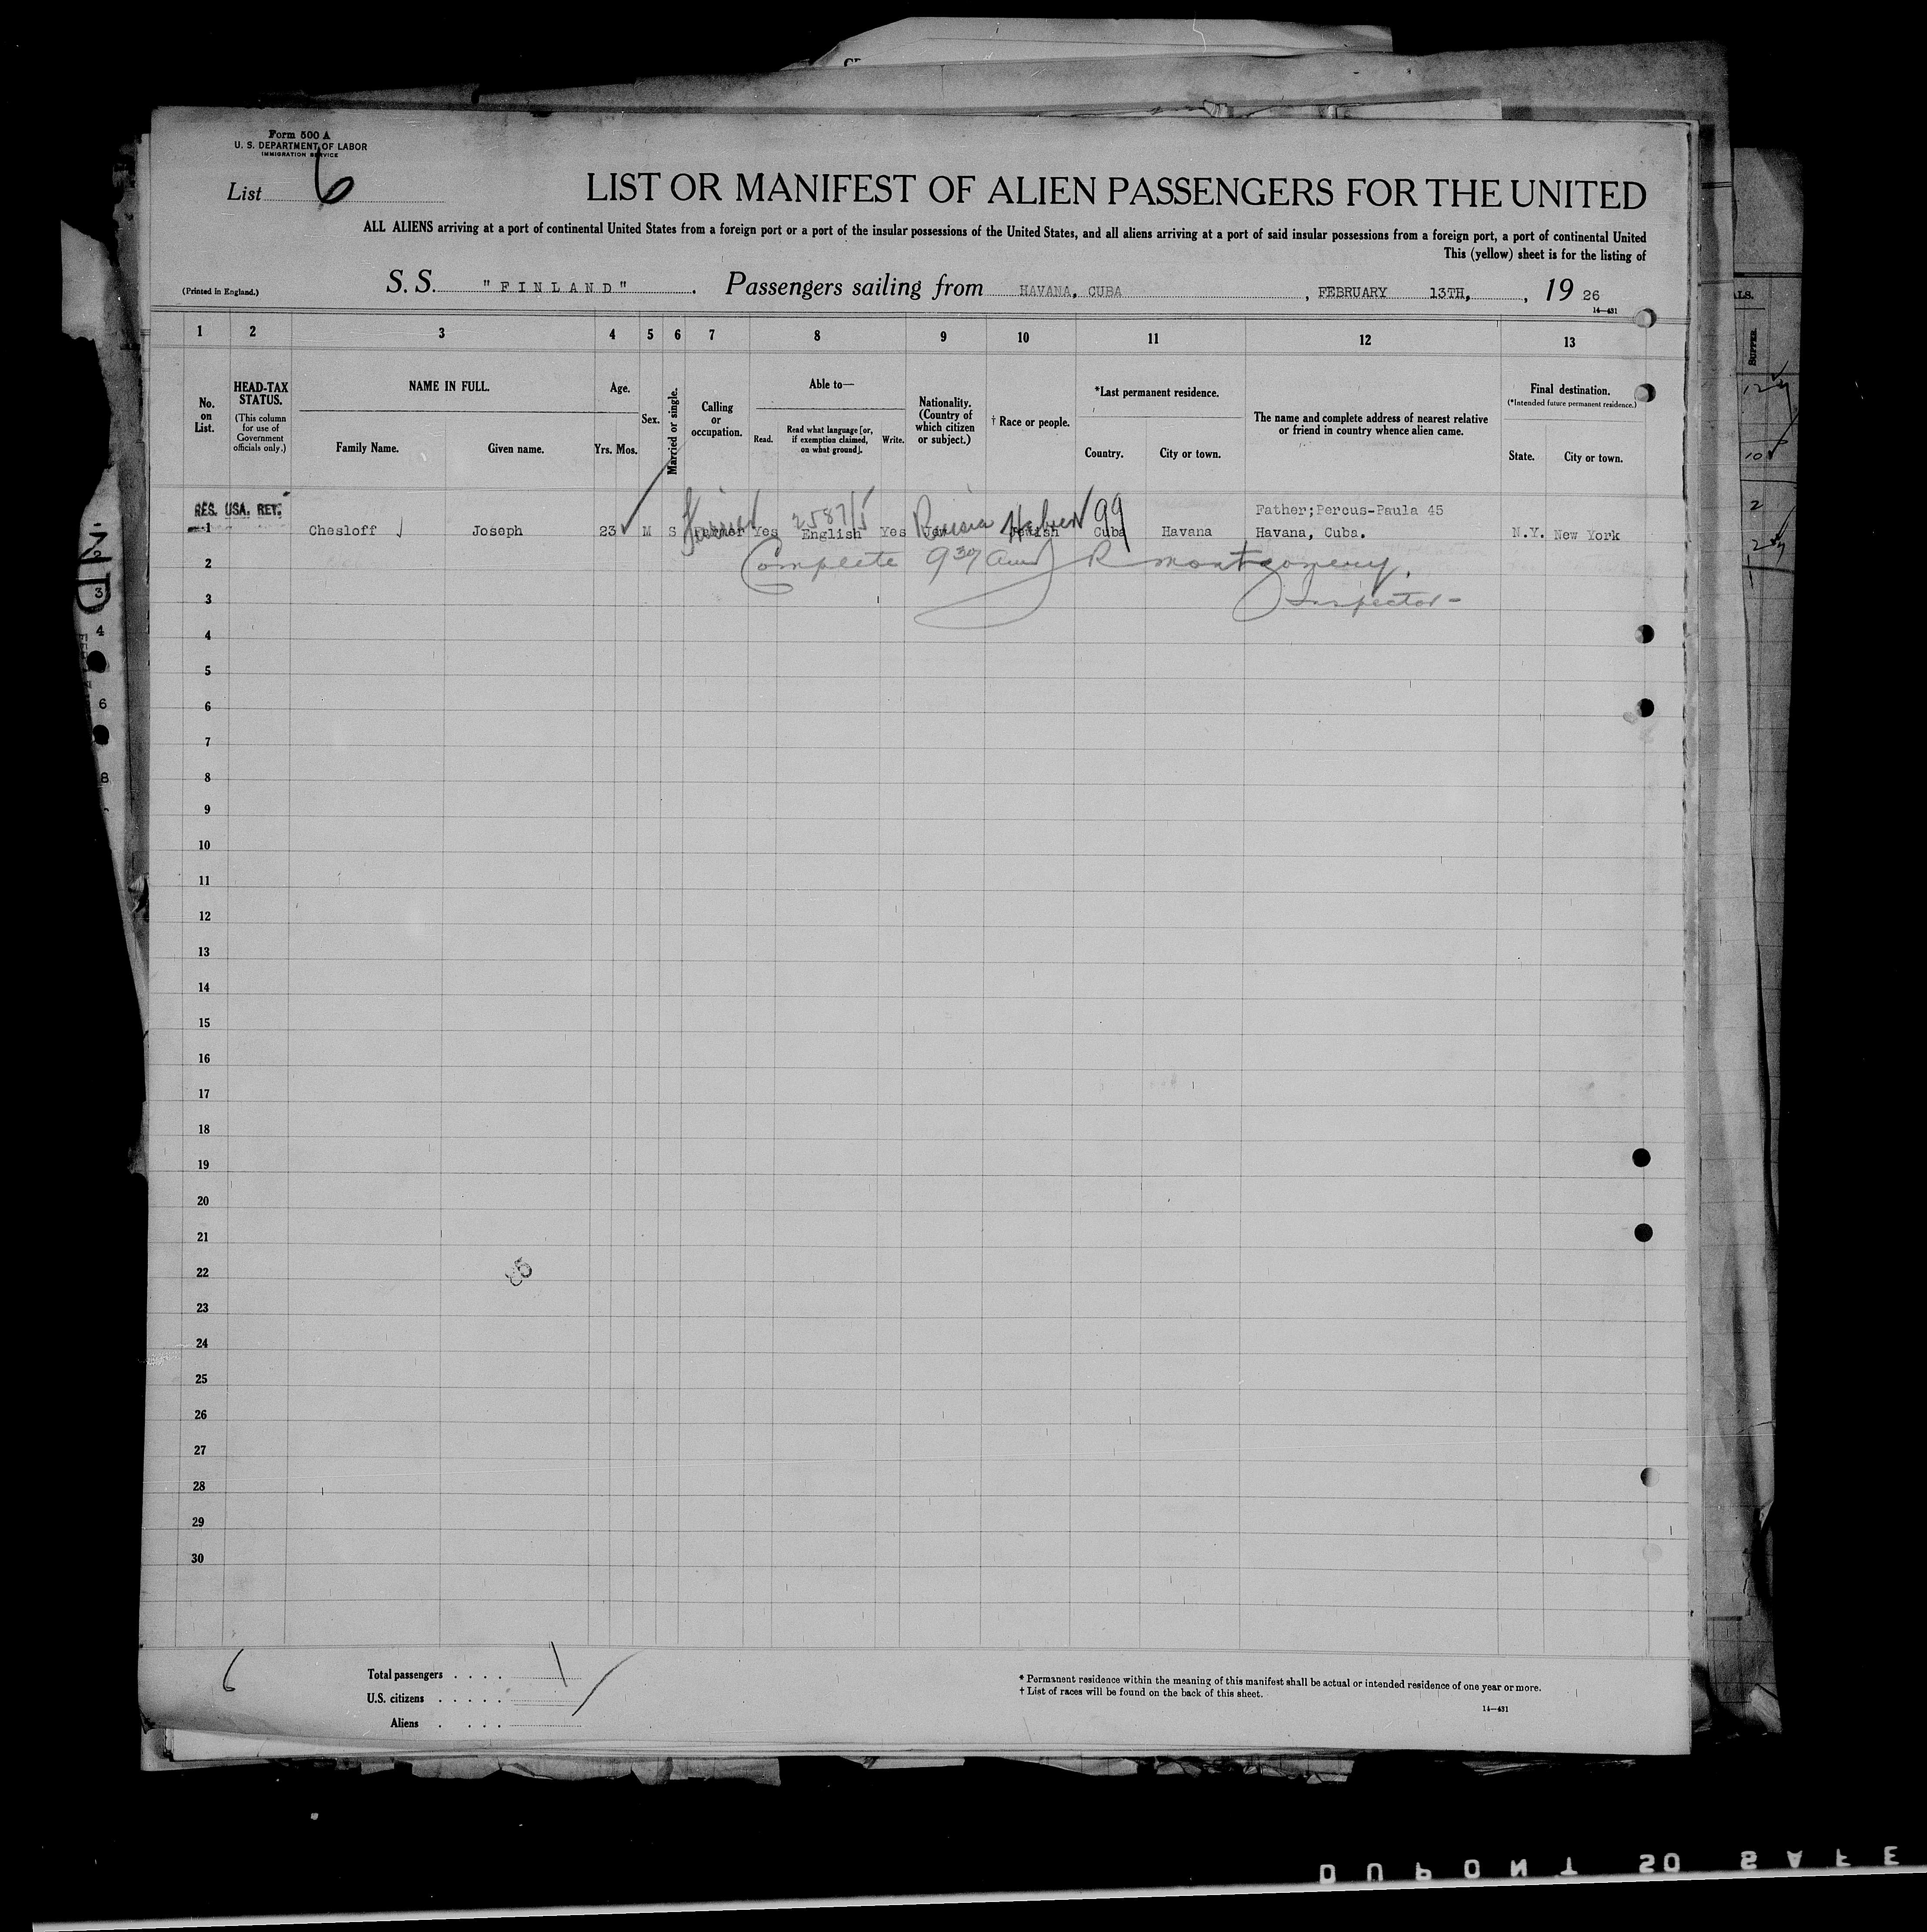 Form 500 A
U. S. DEPARTMENT OF LABOR
IMMIGRATION SERVICE
List 6
LIST OR MANIFEST OF ALIEN PASSENGERS FOR THE UNITED
ALL ALIENS arriving at a port of continental United States from a foreign port or a port of the insular possessions of the United States, and all aliens arriving at a port of said insular possessions from a foreign port, a port of continental United
This (yellow) sheet is for the listing of
(Printed in England.)
S. S. "FINLAND". Passengers sailing from HAVANA, CUBA, FEBRUARY 13TH, , 19 26
14—431
1 2 3 4 5 6 7 8 9 10 11 12 13
No. on List.
HEAD-TAX STATUS.
(This column for use of Government officials only.)
NAME IN FULL.
Family Name. Given name.
Age.
Yrs. Mos.
Sex.
Married or single.
Calling or occupation.
Able to—
Read. Read what language [or, if exemption claimed, on what ground]. Write.
Nationality. (Country of which citizen or subject.)
† Race or people.
*Last permanent residence.
Country. City or town.
The name and complete address of nearest relative or friend in country whence alien came.
Final destination.
(*Intended future permanent residence.)
State. City or town.
RES. USA. RET.
2587/5 Russia Hebrew 99
Father;Percus-Paula 45
1 Chesloff Joseph 23 M S Yes English Yes Jewish Cuba Havana Havana, Cuba. N.Y. New York
2 Complete 9 30 am R Montgomery.
3 Inspector-
4
5
6
7
8
9
10
11
12
13
14
15
16
17
18
19
20
21
22
23
24
25
26
27
28
29
30
6
Total passengers . . . . 1
U.S. citizens . . . . .
Aliens . . . .
* Permanent residence within the meaning of this manifest shall be actual or intended residence of one year or more.
† List of races will be found on the back of this sheet.
14—431
DUPONT 50 SAFE